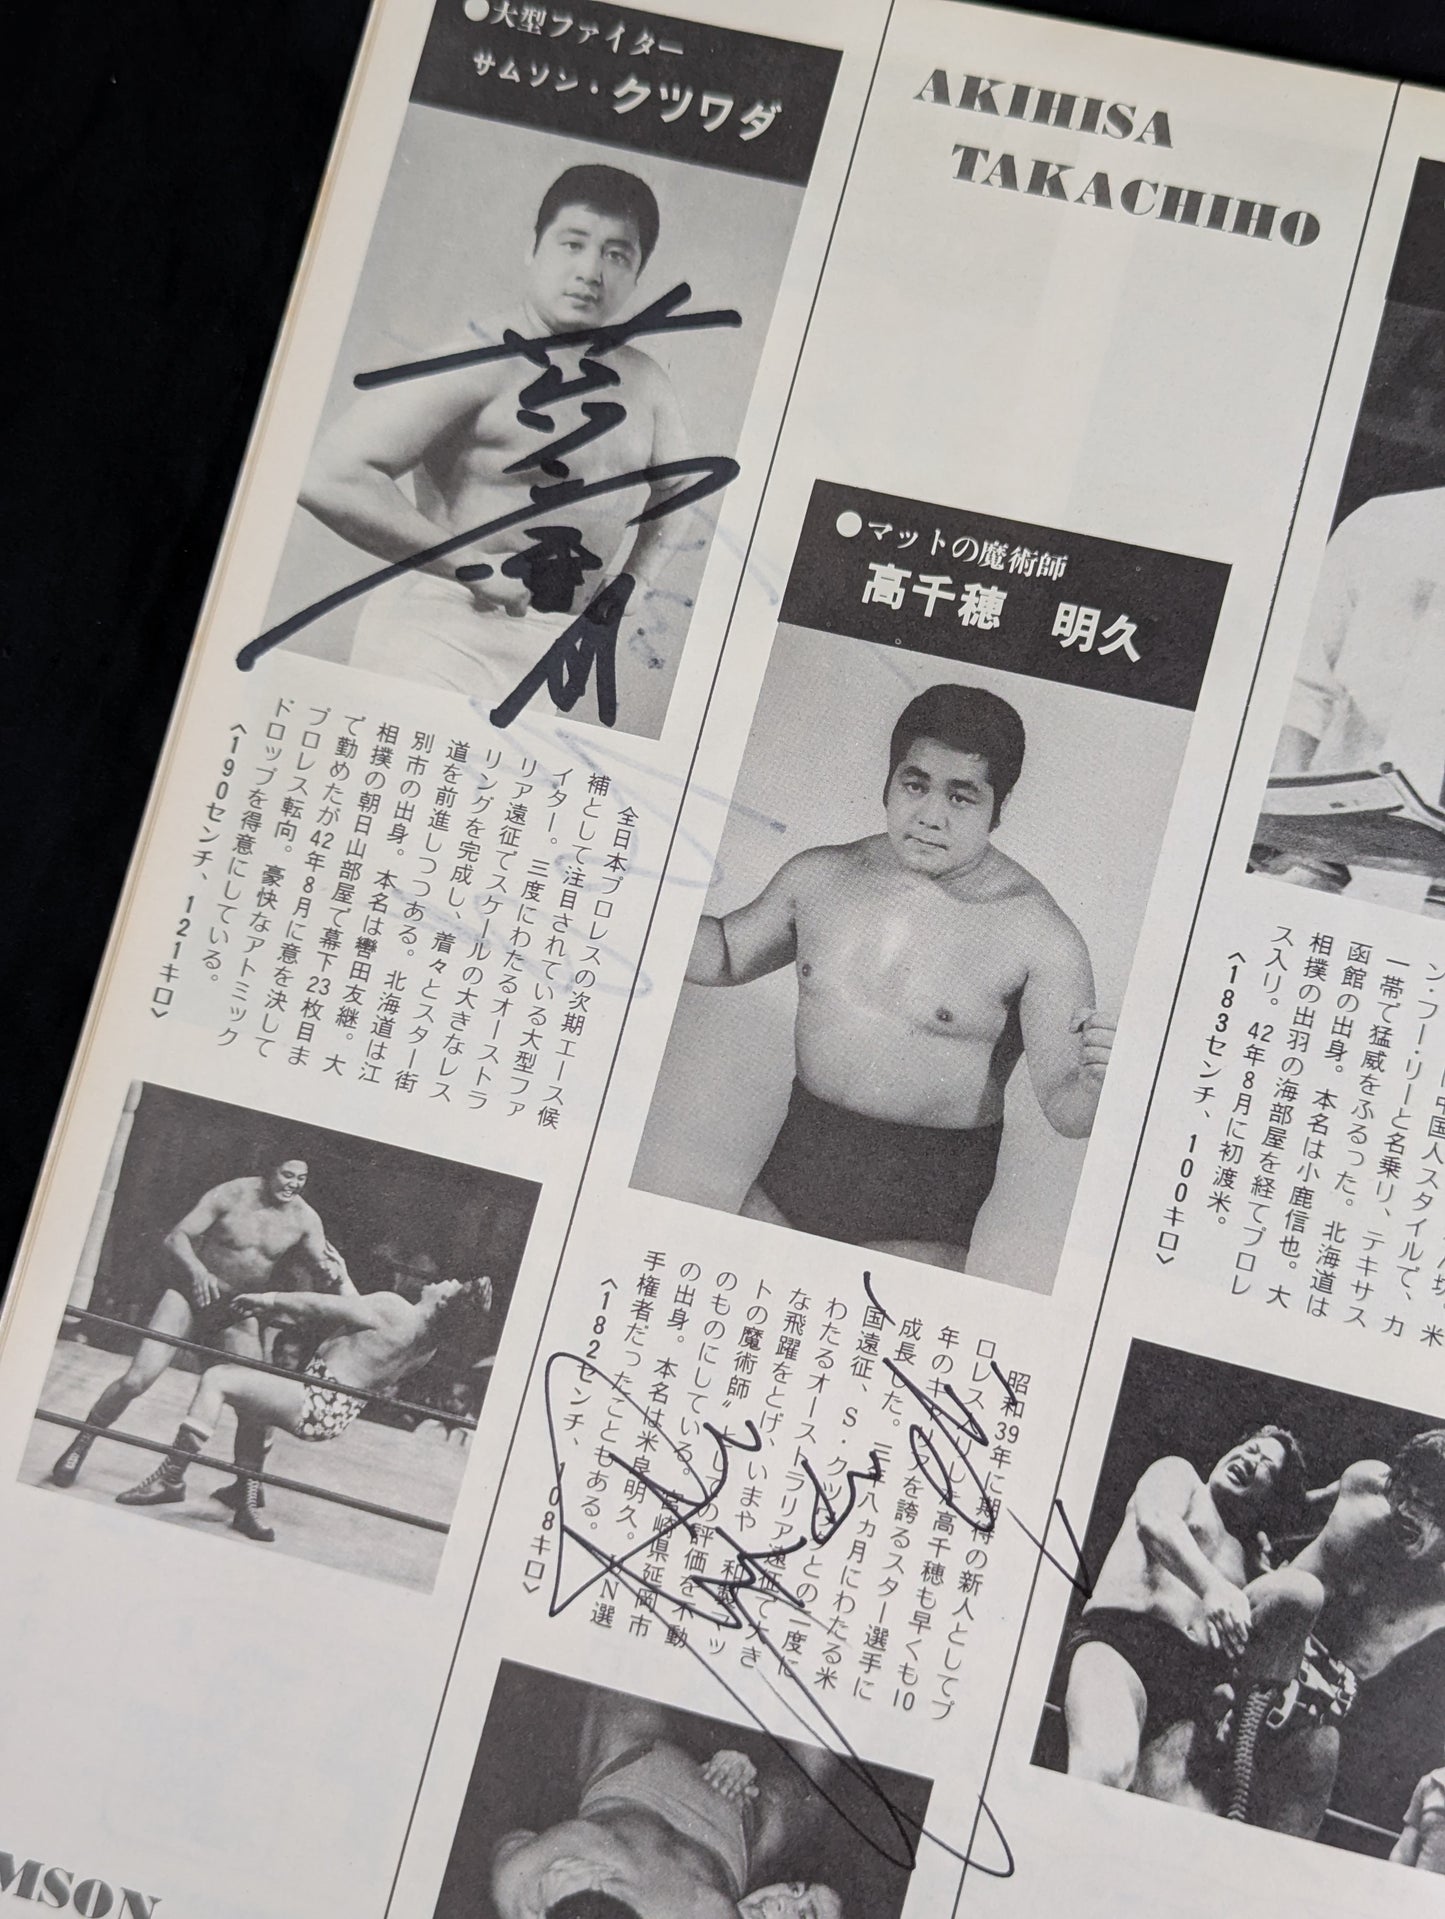 ●大型ファイター
サムソン・クツワダ
全日本プロレスの次期エース候
補として注目されている大型ファ
イター。三度にわたるオーストラ
リア遠征でスケールの大きなレス
リングを完成し、着々とスター街
道を前進しつつある。北海道は江
別市の出身。本名は轡田友継。大
相撲の朝日山部屋で幕下23枚目ま
で勤めたが42年8月に意を決して
プロレス転向。豪快なアトミック
ドロップを得意にしている。
〈190センチ、121キロ〉
MSON
AKIHISA
TAKACHIHO
●マットの魔術師
高千穂 明久
昭和39年に期待の新人としてプ
ロレス入りした高千穂も早くも10
年のキャリアを誇るスター選手に
成長した。三年八ヵ月にわたる米
国遠征、S・クツワダとの二度に
わたるオーストラリア遠征で大き
な飛躍をとげ、いまや 和製マッ
トの魔術師〟としての評価を不動
のものにしている。宮崎県延岡市
の出身。本名は米良明久。UN選
手権者だったこともある。
〈182センチ、108キロ〉
ン・フー・リーと名乗り、テキサス
一帯で猛威をふるった。北海道は
函館の出身。本名は小鹿信也。大
相撲の出羽の海部屋を経てプロレ
ス入り。42年8月に初渡米。
〈183センチ、100キロ〉